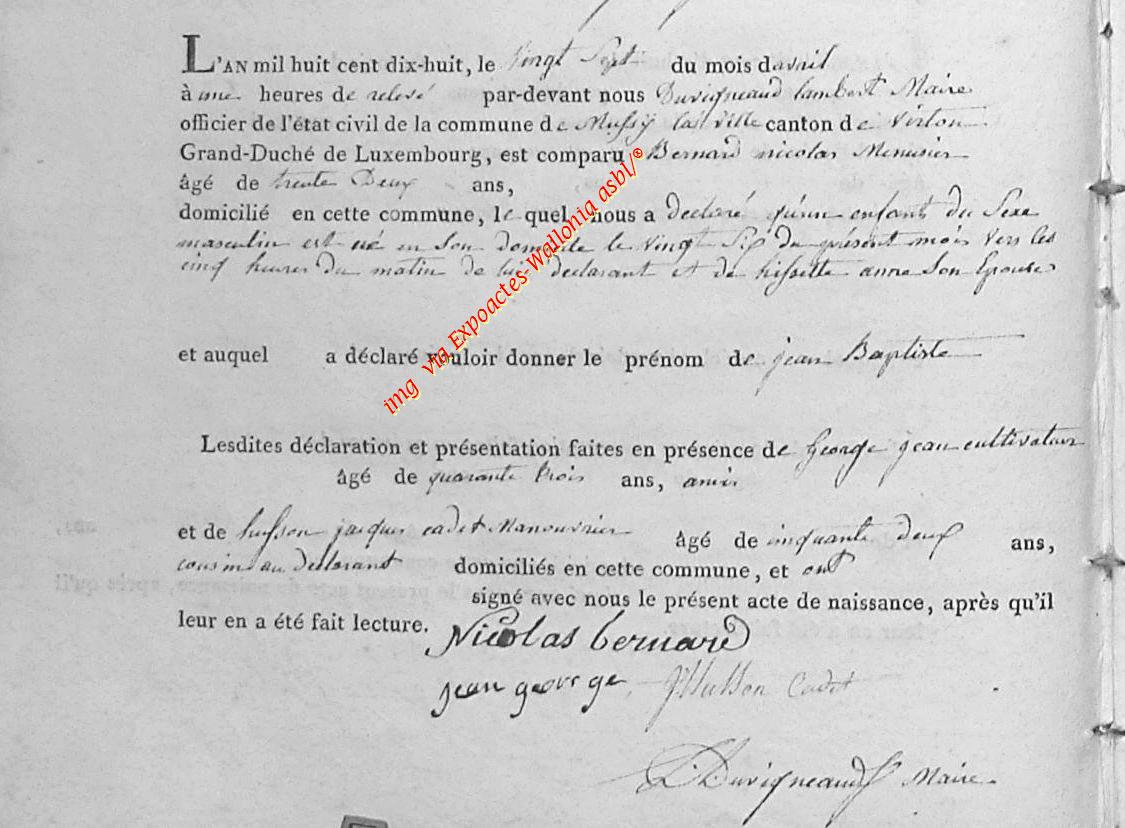 L'AN mil huit cent dix-huit, le vingt Sept du mois d'avril
à une heures de relevé par-devant nous Duvigneaud lambert Maire
officier de l'état civil de la commune de Mussy la ville canton de virton
Grand-Duché de Luxembourg, est comparu Bernard nicolas Menusier
âgé de trente Deux ans,
domicilié en cette commune, le quel nous a declaré qu'un enfant du Sexe
masculin est né en Son domicile le vingt Six du présent mois vers les
cinq heures du matin de lui declarant et de hissette anne Son Epouse
et auquel a déclaré vouloir donner le prénom de jean Baptiste
Lesdites déclaration et présentation faites en présence de George jean cultivateur
âgé de quarante trois ans, amis
et de husson jacques cadet Manouvrier âgé de cinquante deux ans,
cousin au declarant domiciliés en cette commune, et ont
signé avec nous le présent acte de naissance, après qu'il
leur en a été fait lecture.
Nicolas bernard
jean george JHusson Cadet
Duvigneaud Maire
img via Expoactes-Wallonia asbl/®